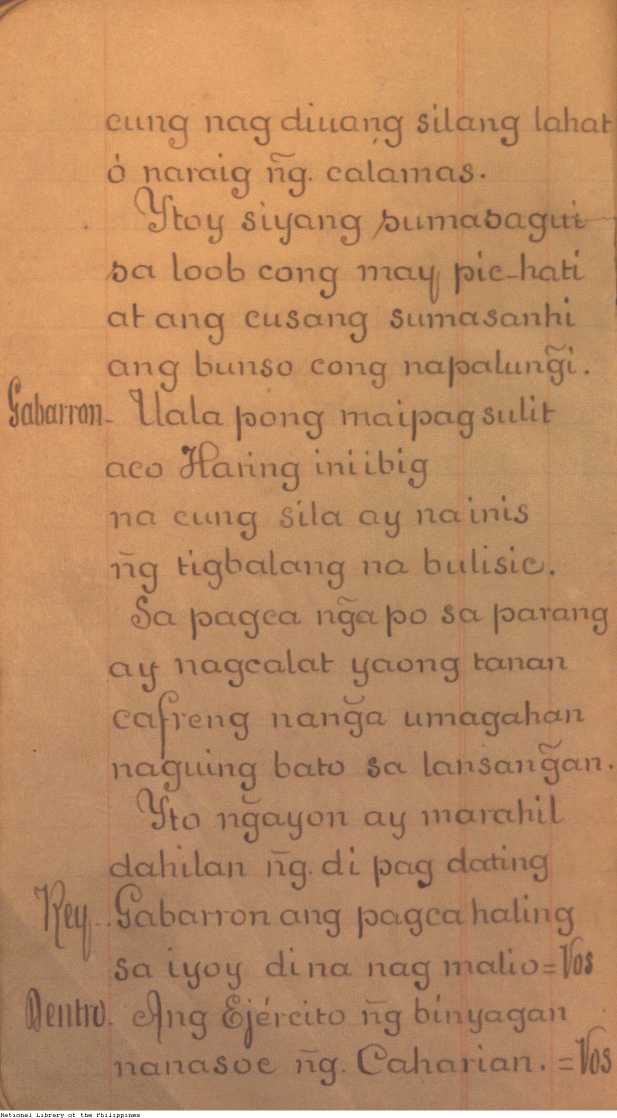 cung nag diuang silang lahat
ó naraig ñg. calamas.
Ytoy siyang sumasagui
sa loob cong may pic-hati
at ang cusang sumasanhi
ang bunso cong napalung̃i.
Gabarron- Uala pong maipag sulit
aco Haring iniibig
na cung sila ay na inis
ñg tigbalang na bulisic.
Sa pagca ng̃a po sa parang
ay nagcalat yaong tanan
cafreng nang̃a umagahan
naguing bato sa lansang̃an.
Yto ng̃ayon ay marahil
dahilan ñg. di pag dating
Rey.. Gabarron ang pagca haling
sa iyoy di na nag malio=Vos
Dentro. Ang Ejército ñg binyagan
nanasoc ñg. Caharian.=Vos
National Library of the Philippines